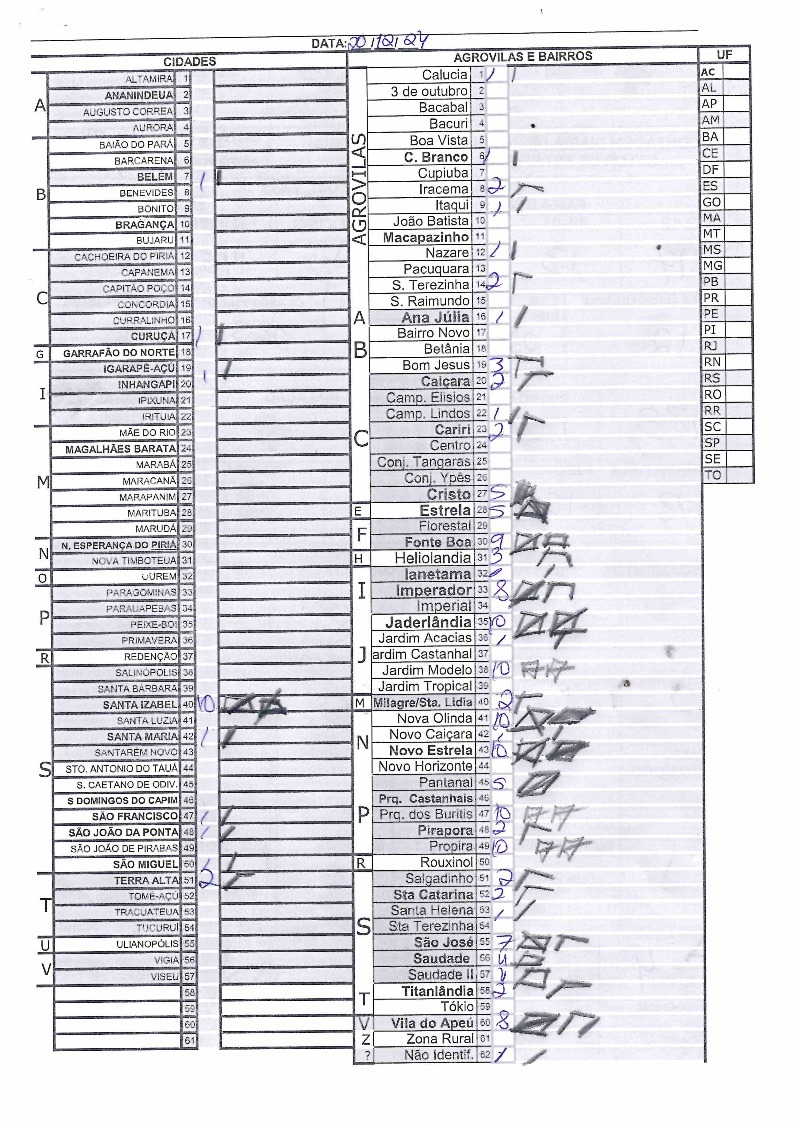 DATA: 20/12/24
CIDADES
A
ALTAMIRA 1
ANANINDEUA 2
AUGUSTO CORREA 3
AURORA 4
B
BAIÃO DO PARÁ 5
BARCARENA 6
BELEM 7 1
BENEVIDES 8
BONITO 9
BRAGANÇA 10
BUJARU 11
C
CACHOEIRA DO PIRIA 12
CAPANEMA 13
CAPITÃO POÇO 14
CONCORDIA 15
CURRALINHO 16
CURUÇA 17 1
G GARRAFÃO DO NORTE 18
I
IGARAPÉ-AÇÚ 19 1
INHANGAPI 20
IPIXUNA 21
IRITUIA 22
M
MÃE DO RIO 23
MAGALHÃES BARATA 24
MARABÁ 25
MARACANÃ 26
MARAPANIM 27
MARITUBA 28
MARUDÁ 29
N
N. ESPERANÇA DO PIRIÁ 30
NOVA TIMBOTEUA 31
O OUREM 32
P
PARAGOMINAS 33
PARAUAPEBAS 34
PEIXE-BOI 35
PRIMAVERA 36
R REDENÇÃO 37
S
SALINÓPOLIS 38
SANTA BÁRBARA 39
SANTA IZABEL 40 10
SANTA LUZIA 41
SANTA MARIA 42 1
SANTARÉM NOVO 43
STO. ANTONIO DO TAUÁ 44
S. CAETANO DE ODIV. 45
S DOMINGOS DO CAPIM 46
SÃO FRANCISCO 47 1
SÃO JOÃO DA PONTA 48 1
SÃO JOÃO DE PIRABAS 49
SÃO MIGUEL 50 1
T
TERRA ALTA 51 2
TOMÉ-AÇU 52
TRACUATEUA 53
TUCURUÍ 54
U ULIANOPÓLIS 55
V
VIGIA 56
VISEU 57
58
59
60
61
AGROVILAS E BAIRROS
AGROVILAS
Calucia 1 1
3 de outubro 2
Bacabal 3
Bacuri 4
Boa Vista 5
C. Branco 6 1
Cupiuba 7
Iracema 8 2
Itaqui 9 1
João Batista 10
Macapazinho 11
Nazare 12 1
Pacuquara 13
S. Terezinha 14 2
S. Raimundo 15
A Ana Júlia 16 1
B
Bairro Novo 17
Betânia 18
Bom Jesus 19 3
C
Caiçara 20 2
Camp. Elisios 21
Camp. Lindos 22 1
Cariri 23 2
Centro 24
Conj. Tangaras 25
Conj. Ypês 26
Cristo 27 5
E Estrela 28 5
F
Florestal 29
Fonte Boa 30 9
H Heliolandia 31 3
I
Ianetama 32 1
Imperador 33 8
Imperial 34
J
Jaderlândia 35 10
Jardim Acacias 36 1
ardim Castanhal 37
Jardim Modelo 38 10
Jardim Tropical 39
M Milagre/Sta. Lidia 40 2
N
Nova Olinda 41 10
Novo Caiçara 42 1
Novo Estrela 43 10
Novo Horizonte 44
P
Pantanal 45 5
Prq. Castanhais 46
Prq. dos Buritis 47 10
Pirapora 48 2
Propira 49 10
R Rouxinol 50
S
Salgadinho 51 2
Sta Catarina 52 2
Santa Helena 53 1
Sta Terezinha 54
São José 55 7
Saudade 56 4
Saudade II 57
T
Titanlândia 58 2
Tókio 59
V Vila do Apeú 60 8
Z Zona Rural 61
? Não Identif. 62 1
UF
AC
AL
AP
AM
BA
CE
DF
ES
GO
MA
MT
MS
MG
PB
PR
PE
PI
RJ
RN
RS
RO
RR
SC
SP
SE
TO